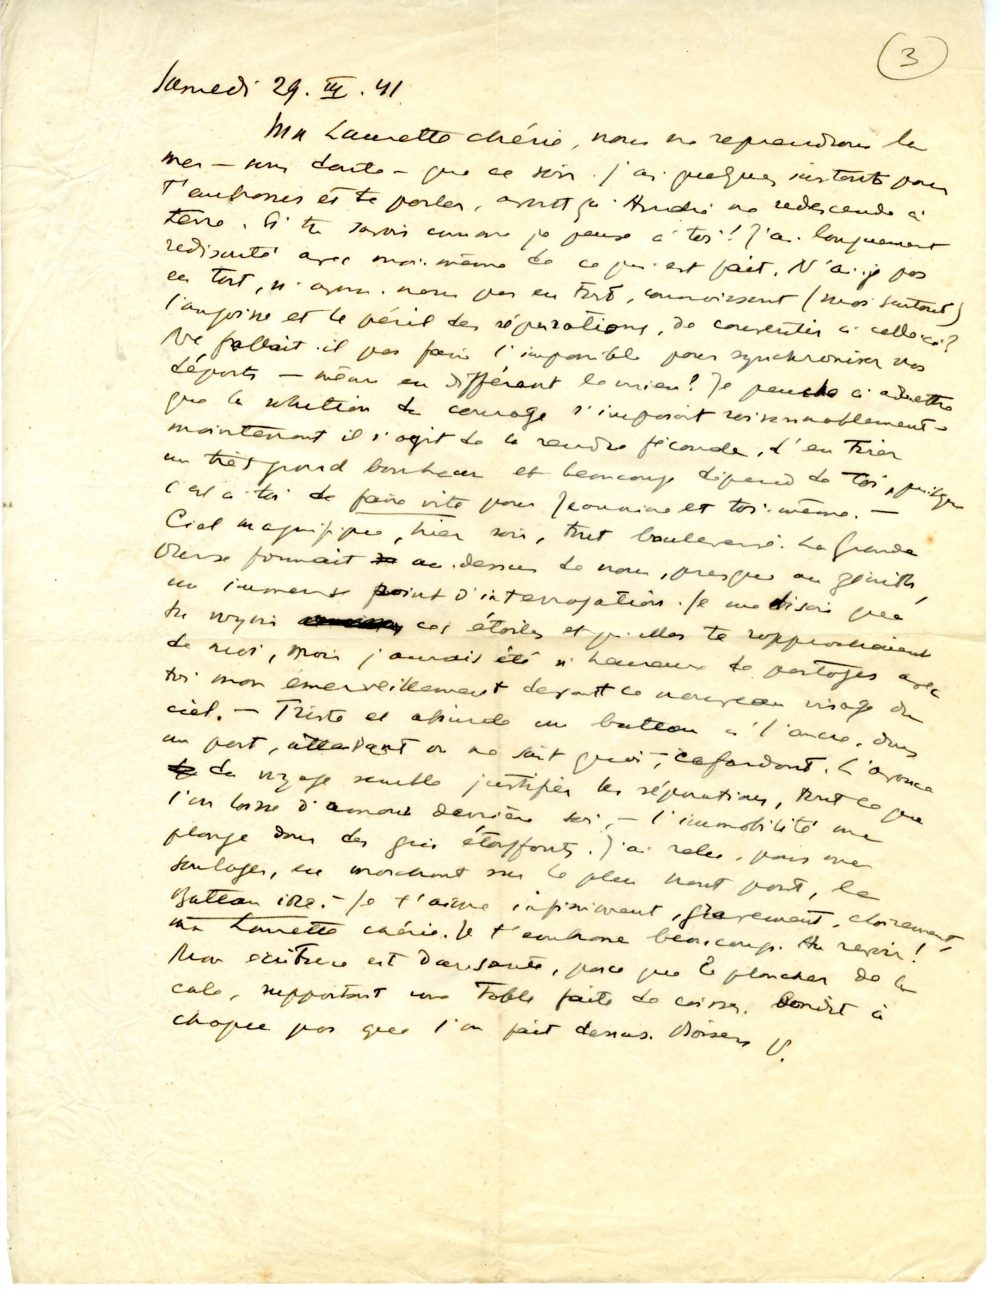 3
Samedi 29. III. 41
Ma Laurette chérie, nous ne reprendrons la
mer – sans doute – que ce soir. J'ai quelques instants pour
t'embrasser et te parler, avant qu'André ne redescende à
terre. Si tu savais comme je pense à toi! J'ai longuement
rediscuté avec moi-même de ce qui est fait. N'ai-je pas
eu tort, n'avons-nous pas eu tort, connaissant (moi surtout)
l'angoisse et le péril des séparations, de consentir à celle-ci?
Ne fallait-il pas faire l'impossible pour synchroniser nos
départs – même en différant le mien? Je penche à admettre
que la solution de courage s'imposait raisonnablement –
maintenant il s'agit de la rendre féconde, d'en tirer
un très grand bonheur et beaucoup dépend de toi, puisque
c'est à toi de faire vite pour Jeannine et toi-même. –
Ciel magnifique, hier soir, tout bouleversé. La Grande
Ourse formait au-dessus de nous, presque au zénith,
un immense point d'interrogation. Je me disais que
tu voyais ces étoiles et qu'elles te rapprochaient
de moi, mais j'aurais été si heureux de partager avec
toi mon émerveillement devant ce nouveau visage du
ciel. – Triste et absurde un bateau à l'ancre, dans
un port, attendant on ne sait quoi, – cafardant. L'avance
du voyage semble justifier les séparations, tout ce que
l'on laisse d'amour derrière soi, – l'immobilité me
plonge dans des gris étouffants. J'ai relu, pour me
soulager, en marchant sur le plus haut pont, le
Bateau ivre. – Je t'aime infiniment, gravement, clairement,
ma Laurette chérie. Je t'embrasse beaucoup. Au revoir! –
Mon écriture est dansante, parce que le plancher de la
cale, supportant une table faite de caisses, bondit à
chaque pas que l'on fait dessus. Baisers V.